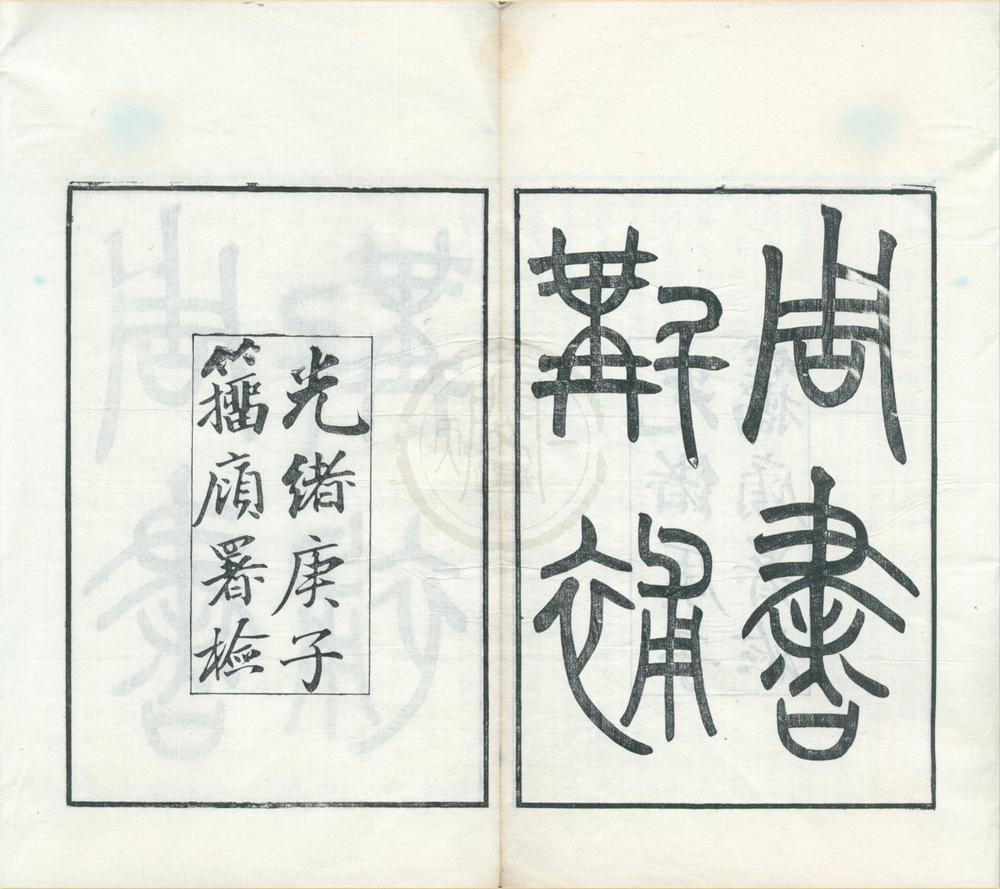 周書
斠補
光緒庚子
籒廎署檢